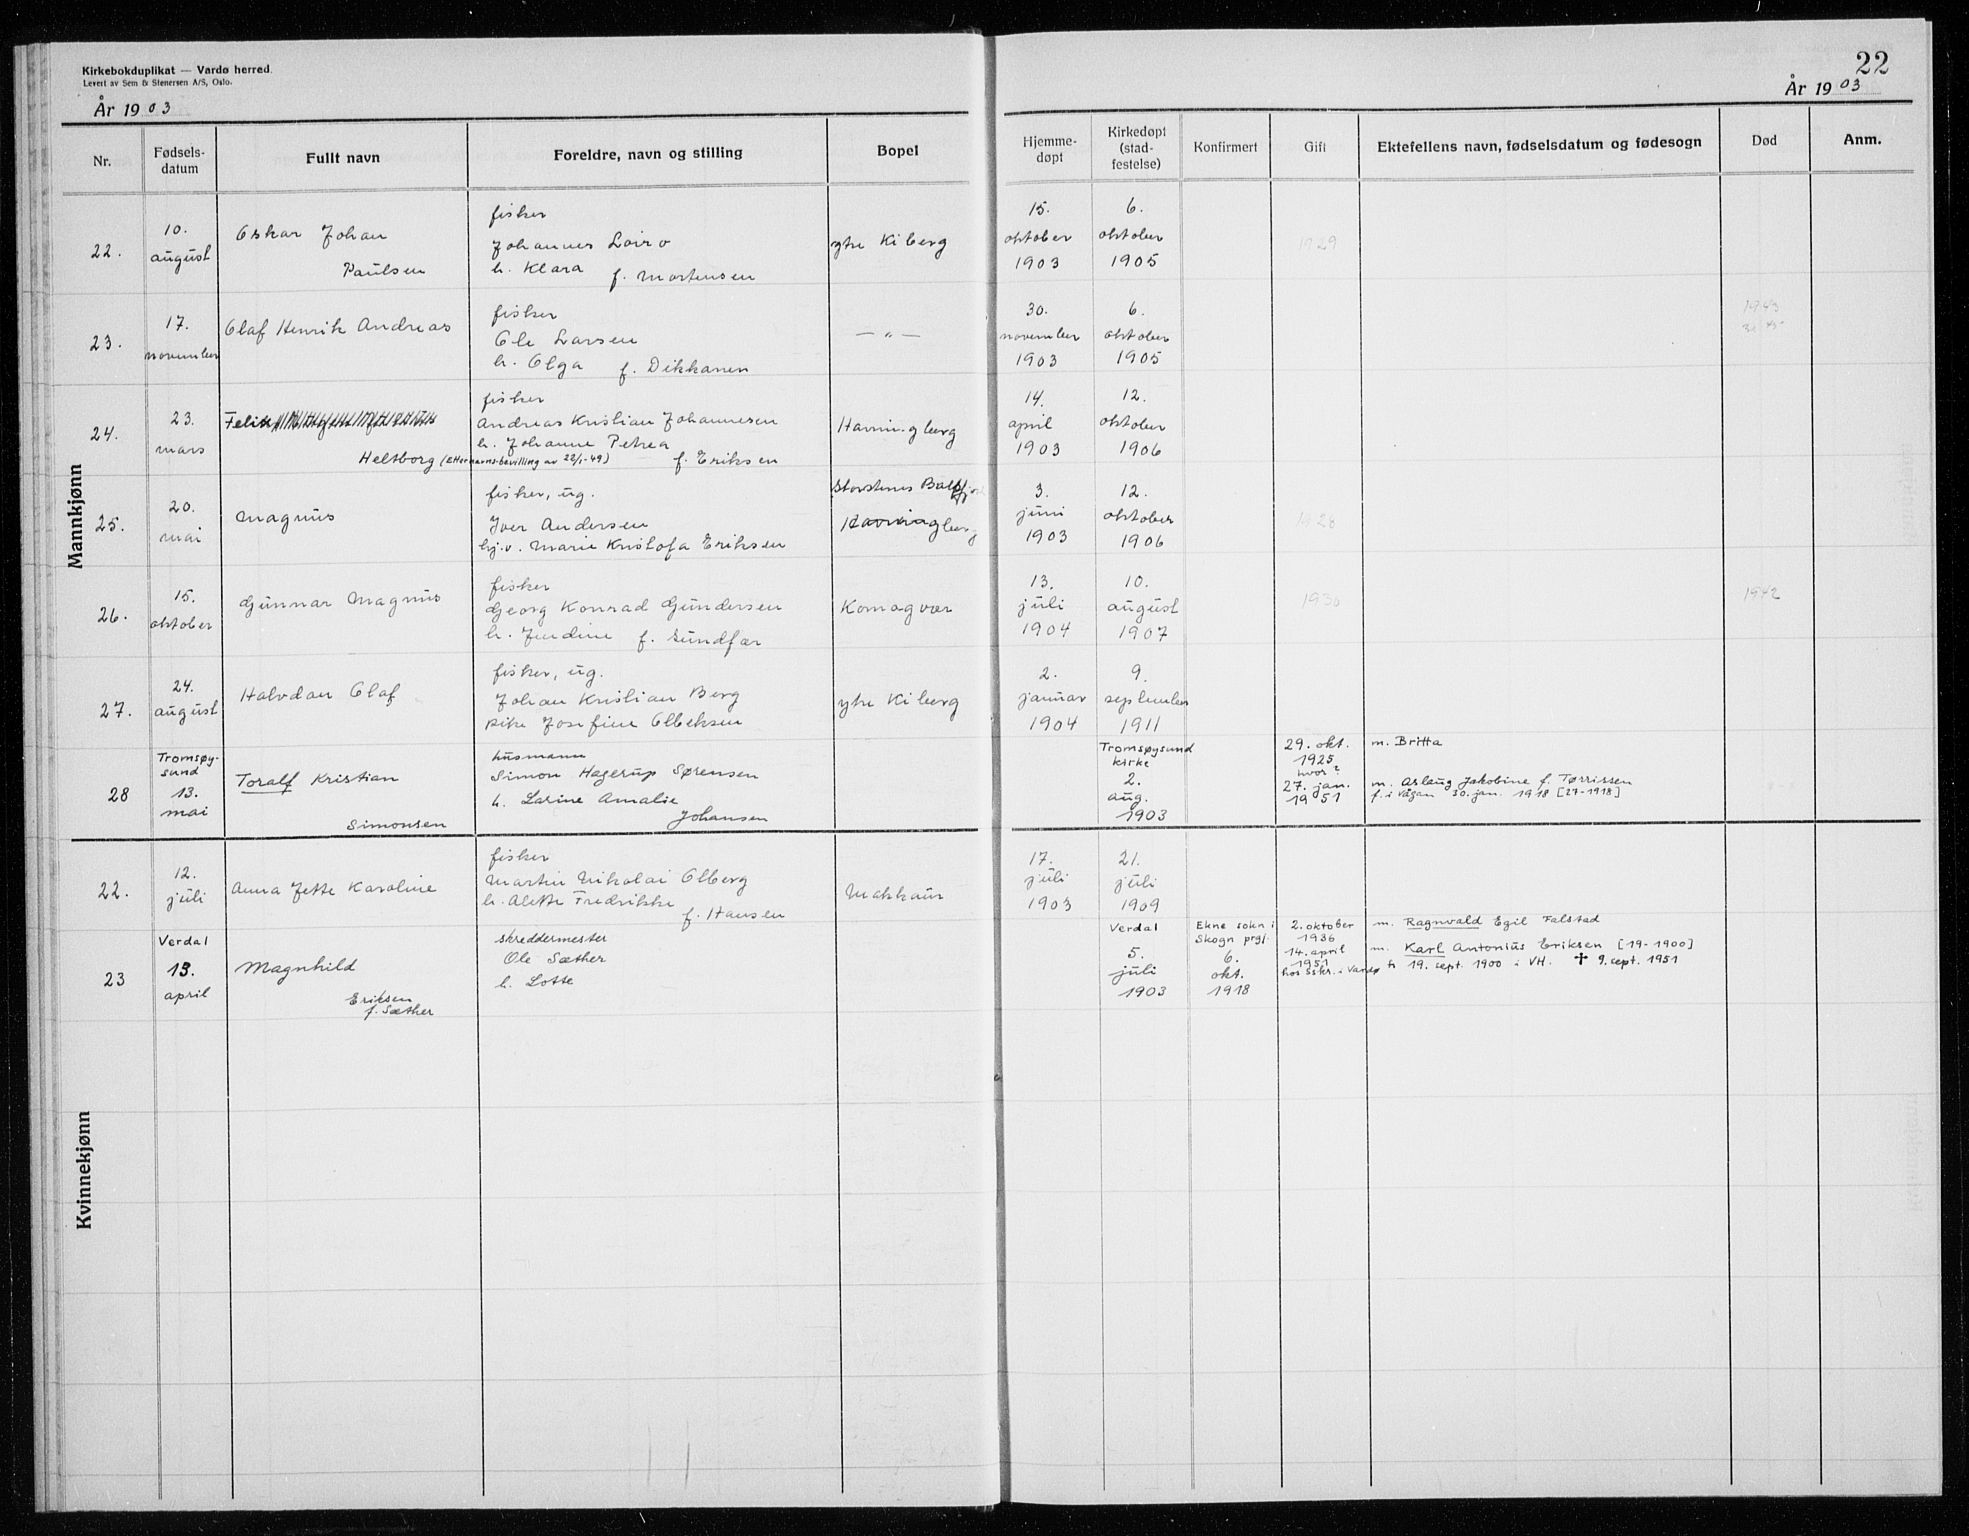 Kirkebokduplikat — Vardø herred.
Levert av Sem & Stenersen A/S, Oslo.
År 1903
22
År 1903
Nr. Fødsels-datum Fullt navn Foreldre, navn og stilling Bopel Hjemme-døpt Kirkedøpt (stad-festelse) Konfirmert Gift Ektefellens navn, fødselsdatum og fødesogn Død Anm.
Mannkjønn
22. 10. august Oskar Johan Paulsen
fisker
Johannes
h. Klara f. Mortensen
ytre Kiberg
15. oktober 1903
6. oktober 1905
1929
23. 17. november Olaf Henrik Andreas
fisker
Ole Larsen
h. Olga f. Dikkanen
— „ —
30. november 1903
6. oktober 1905
1943
24. 23. mars Felix
Heltborg (Etternavns-bevilling av 22/1-49)
fisker
Andreas Kristian Johannesen
h. Johanne Petrea
f. Eriksen
Havningberg
14. april 1903
12. oktober 1906
25. 20. mai Magnus
fisker, ug.
Iver Andersen
hj.v. Marie Kristofa Eriksen
Storstenes Balsfjord
Havningberg
3. juni 1903
12. oktober 1906
1928
26. 15. oktober Gunnar Magnus
fisker
Georg Konrad Gundersen
h. Jendine f. Sundfær
Komagvær
13. juli 1904
10. august 1907
1930
1942
27. 24. august Halvdan Olaf
fisker, ug.
Johan Kristian Berg
pike Josefine Olbeksen
ytre Kiberg
2. januar 1904
9. september 1911
28 Tromsøysund 13. mai Toralf Kristian
Simonsen
husmann
Simon Hagerup Sørensen
h. Larine Amalie
Johansen
Tromsøysund kirke 2. aug. 1903
29. okt. 1925 hvor?
m. Britta
27. jan. 1951
m. Aslaug Jakobine f. Tørrissen
f. i Vågan 30. jan. 1918 [27-1918]
Kvinnekjønn
22. 12. juli Anna Jette Karoline
fisker
Martin Nikolai Olberg
h. Alette Fredrikke
f. Hansen
Makkaur
17. juli 1903
21. juli 1909
23 Verdal 13. april Magnhild
Eriksen
f. Sæther
skreddermester
Ole Sæther
h. Lotte
Verdal 5. juli 1903
Ekne sokn i Skogn prgj. 6. okt. 1918
2. oktober 1936
m. Ragnvald Egil Falstad
14. april 1951
hos sskr. i Vardø
m. Karl Antonius Eriksen [19-1900]
f. 19. sept. 1900 i VH. † 9. sept. 1951